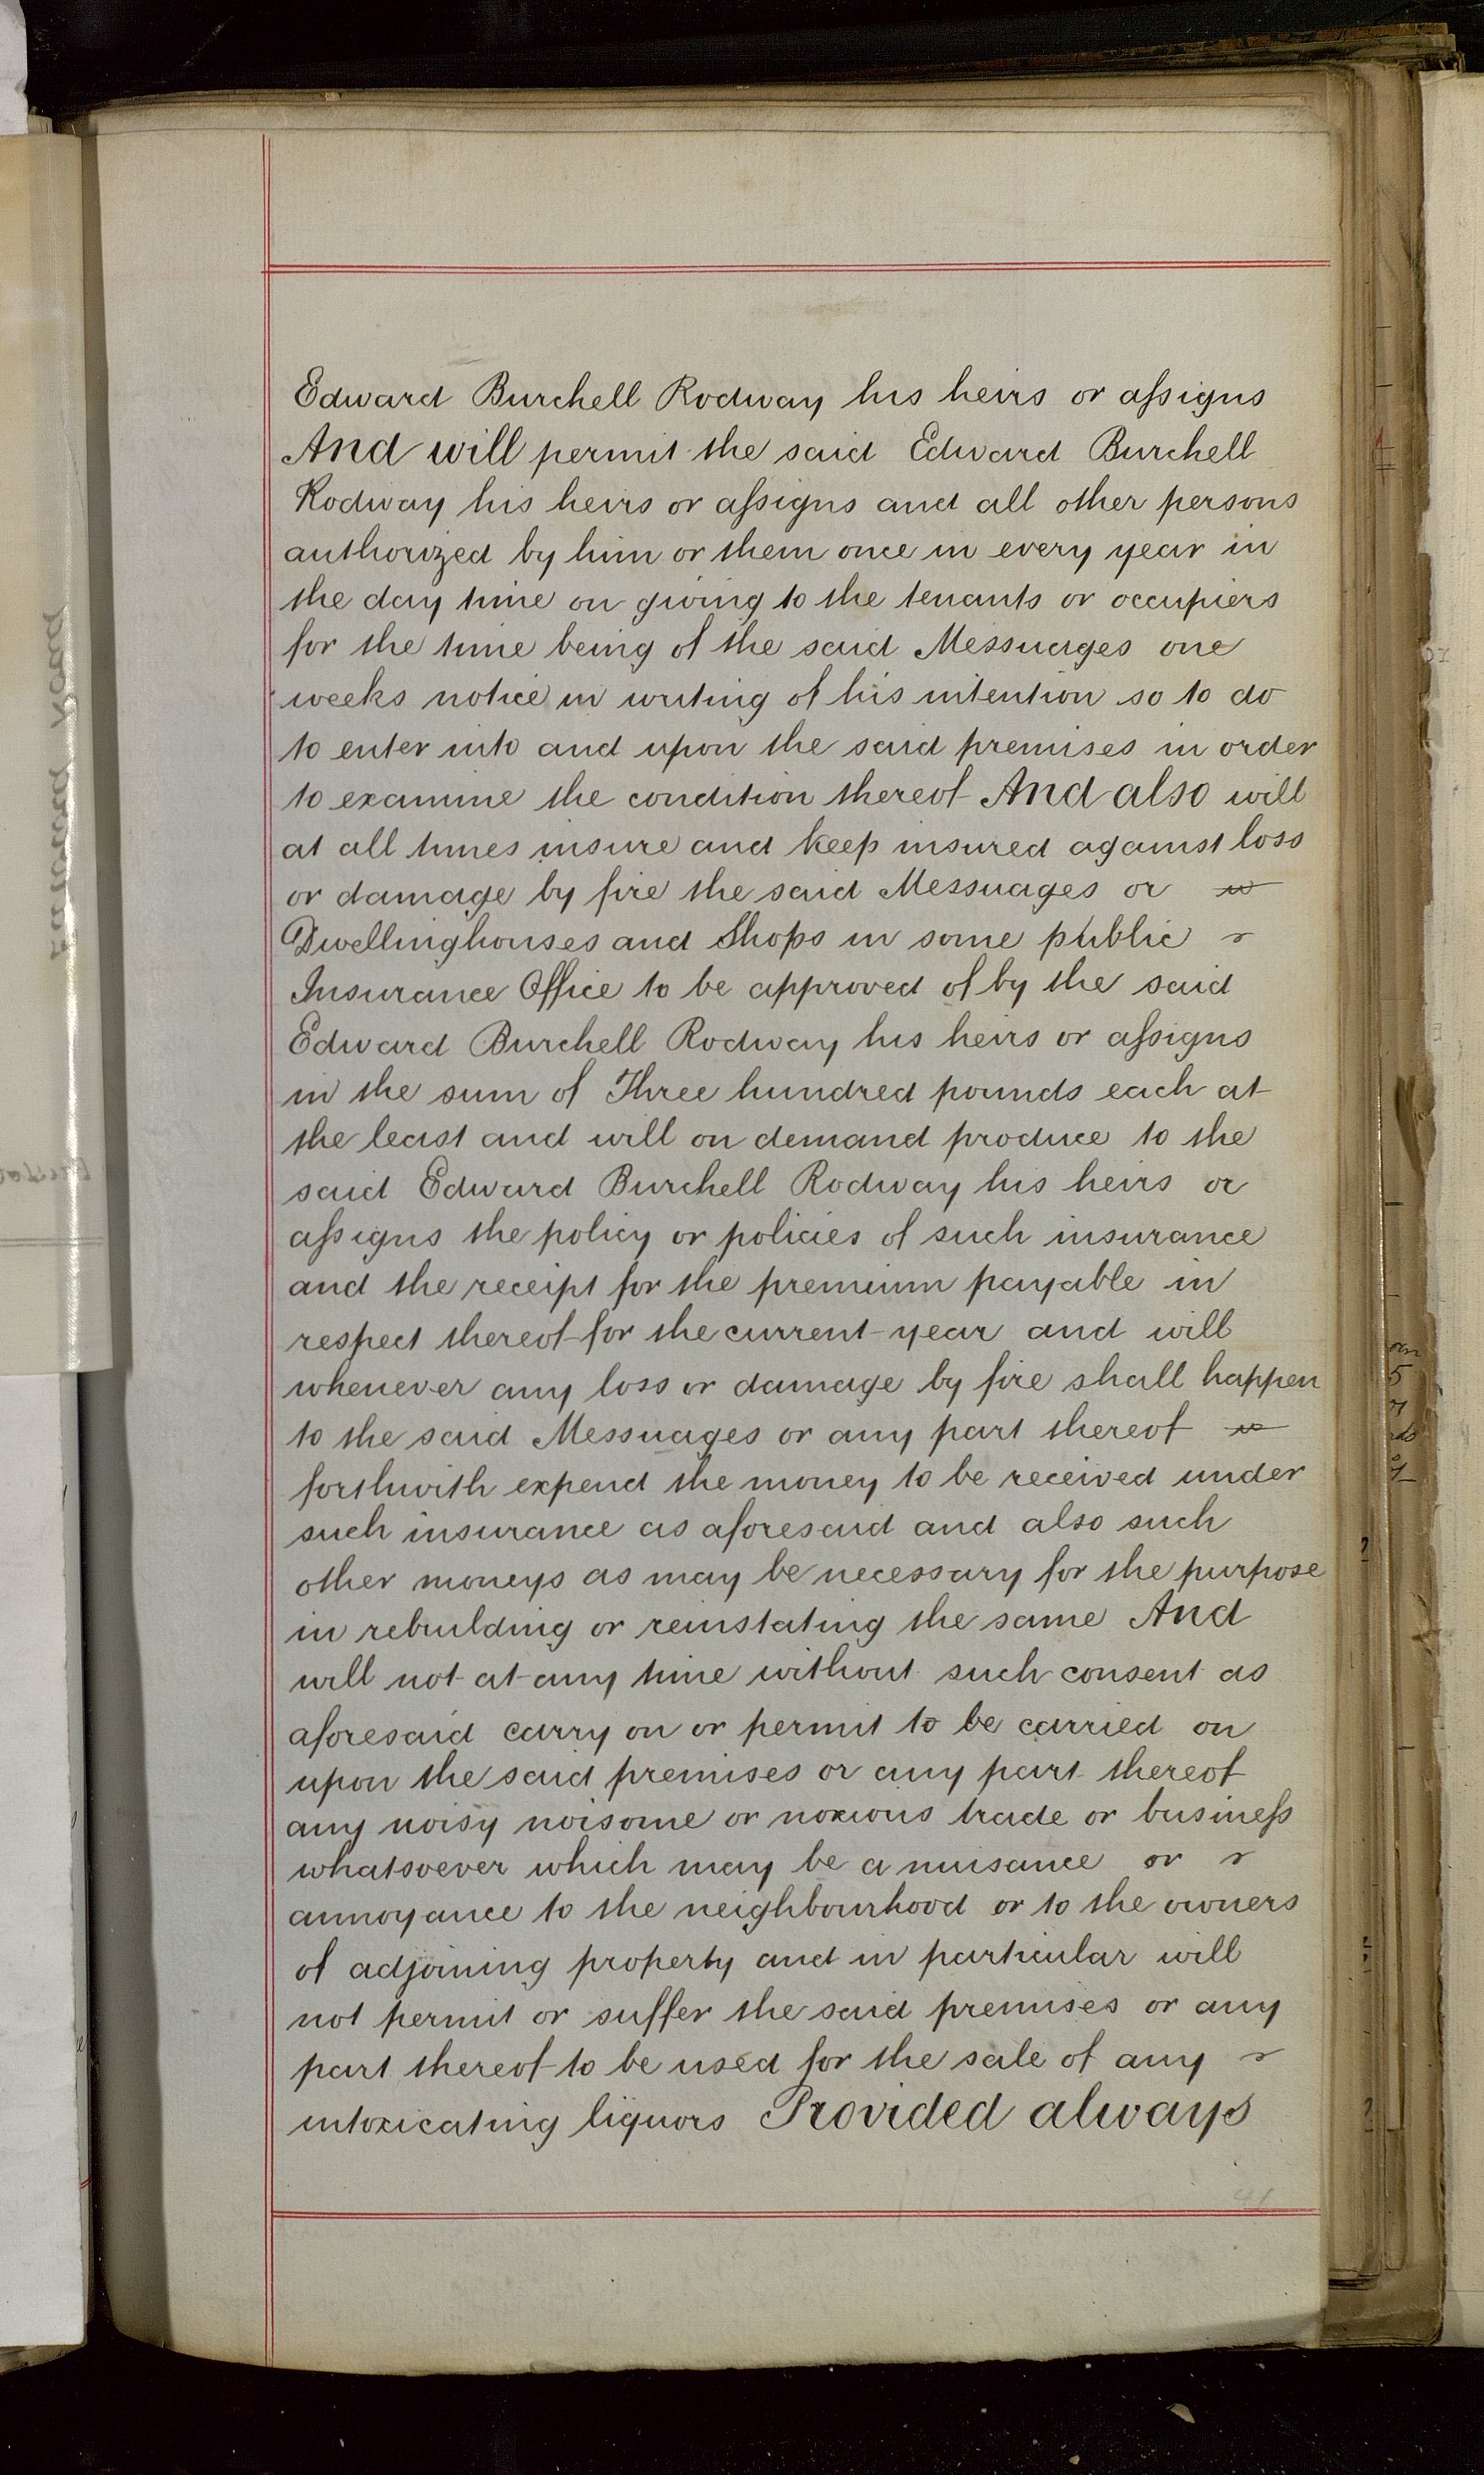 Edward Burchell Rodway his heirs or aſsigns
And will permit the said Edward Burchell
Rodway his heirs or aſsigns and all other persons
authorized by him or them once in every year in
the day time on giving to the tenants or occupiers
for the time being of the said Messuages one
weeks notice in writing of his intention so to do
to enter into and upon the said premises in order
to examine the condition thereof And also will
at all times insure and keep insured against loss
or damage by fire the said Messuages or
Dwellinghouses and Shops in some public
Insurance Office to be approved of by the said
Edward Burchell Rodway his heirs or aſsigns
in the sum of Three hundred pounds each at
the least and will on demand produce to the
said Edward Burchell Rodway his heirs or
aſsigns the policy or policies of such insurance
and the receipt for the premium payable in
respect thereof for the current year and will
whenever any loss or damage by fire shall happen
to the said Messuages or any part thereof
forthwith expend the money to be received under
such insurance as aforesaid and also such
other moneys as may be necessary for the purpose
in rebuilding or reinstating the same And
will not at any time without such consent as
aforesaid carry on or permit to be carried on
upon the said premises or any part thereof
any noisy noisome or noxious trade or busineſs
whatsoever which may be a nuisance or
annoyance to the neighbourhood or to the owners
of adjoining property and in particular will
not permit or suffer the said premises or any
part thereof to be used for the sale of any
intoxicating liquors Provided always